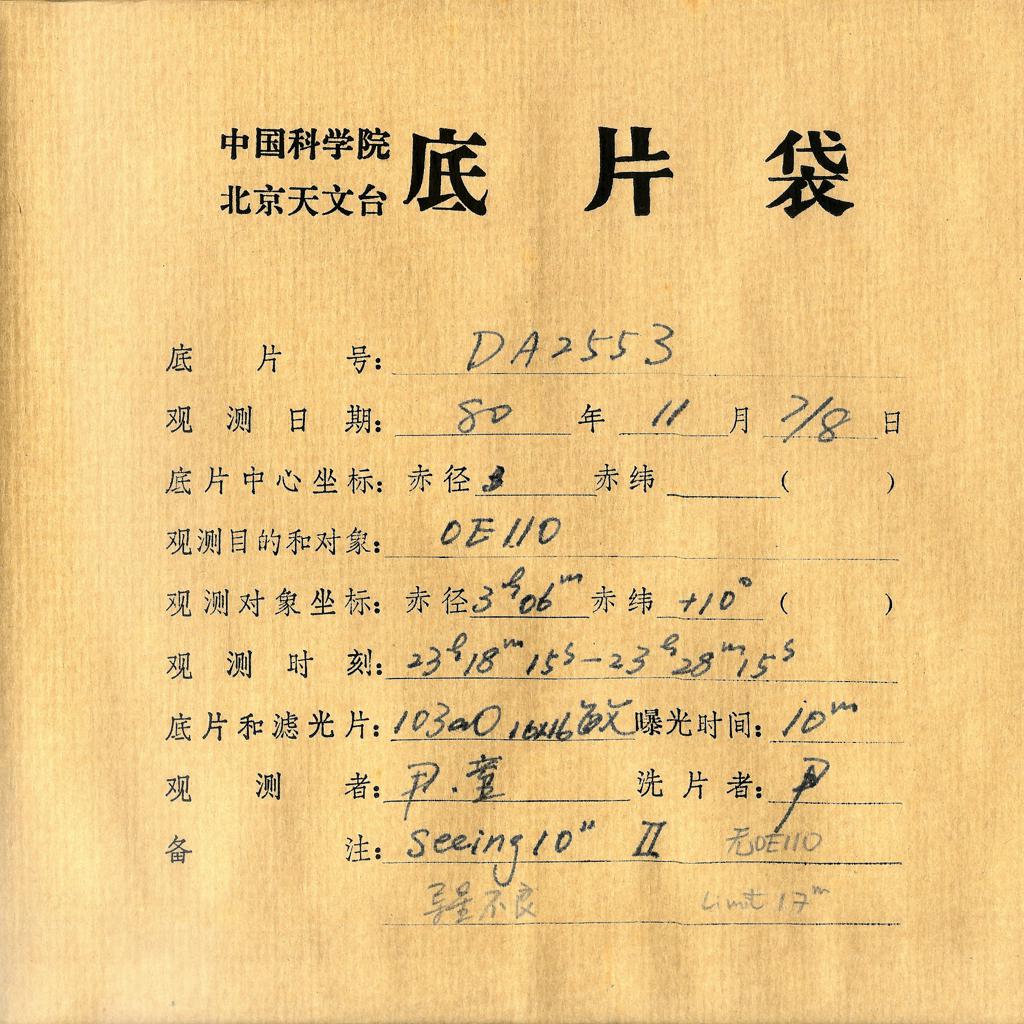 中国科学院
北京天文台 底片袋
底片号: DA2553
观测日期: 80 年 11 月 7/8 日
底片中心坐标: 赤径 3 赤纬 ( )
观测目的和对象: OE110
观测对象坐标: 赤径 3h06m 赤纬 +10° ( )
观测时刻: 23h18m15s—23h28m15s
底片和滤光片: 103aO 16x16 敏 曝光时间: 10m
观测者: 尹.童 洗片者: 尹
备注: seeing 10" II 无OE110
导星不良 Limit 17m